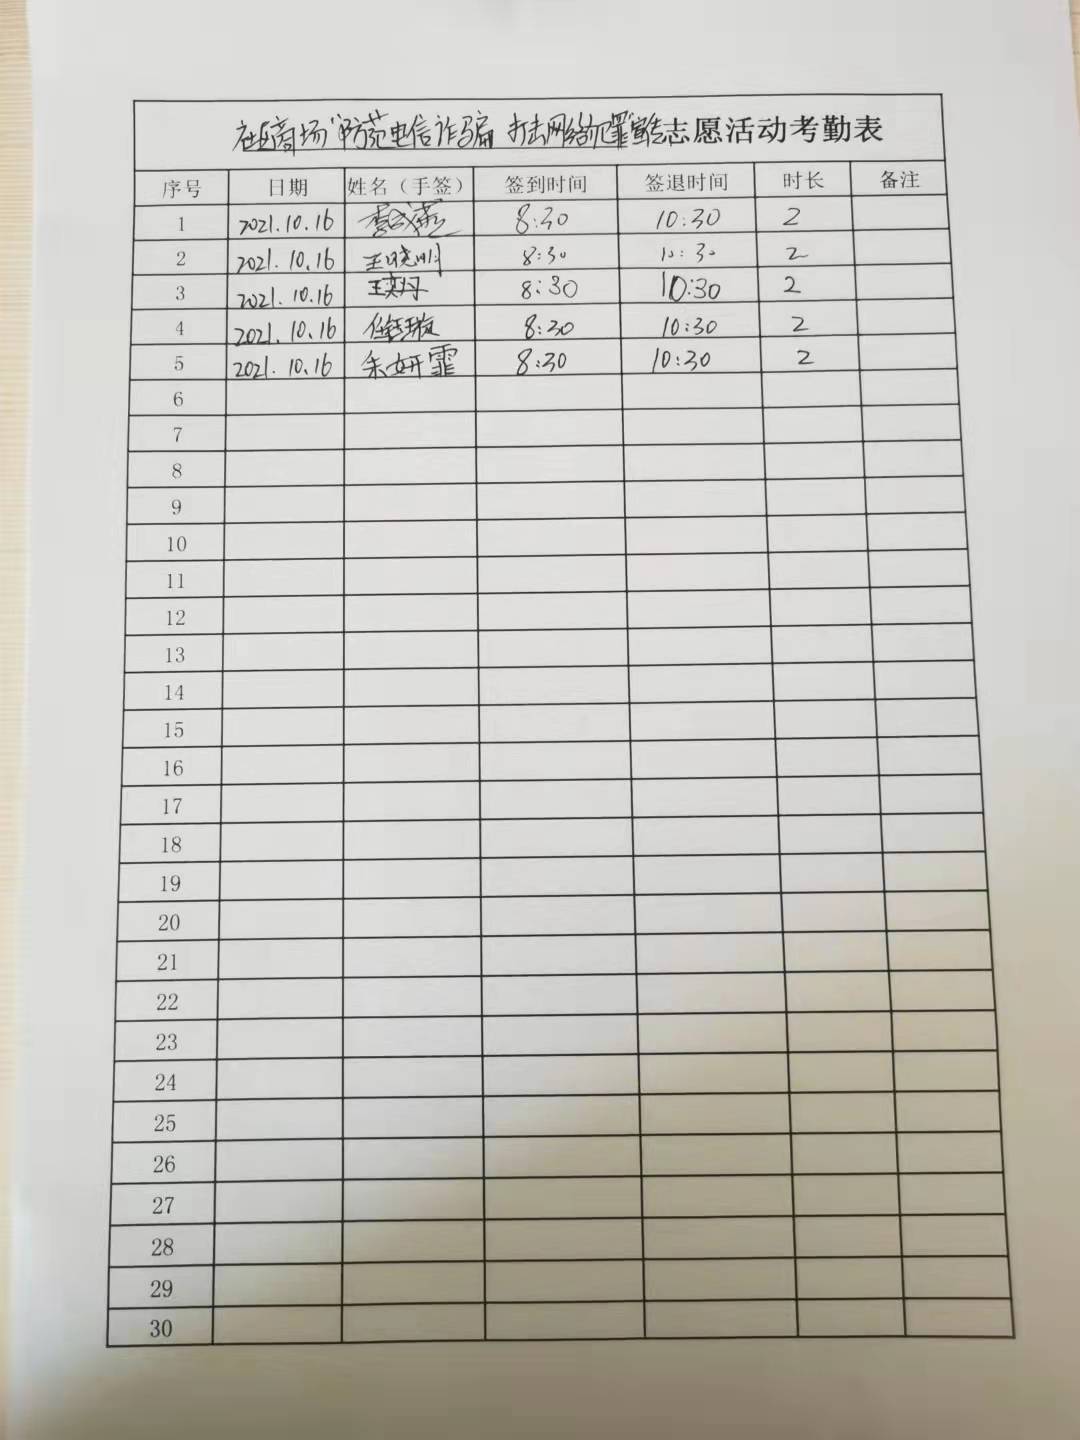 社区商场“防范电信诈骗 打击网络犯罪”宣传志愿活动考勤表
序号 日期 姓名（手签） 签到时间 签退时间 时长 备注
1 2021.10.16 8:30 10:30 2
2 2021.10.16 王晓明 8:30 10:30 2
3 2021.10.16 王奕丹 8:30 10:30 2
4 2021.10.16 任钰璇 8:30 10:30 2
5 2021.10.16 朱妍霏 8:30 10:30 2
6
7
8
9
10
11
12
13
14
15
16
17
18
19
20
21
22
23
24
25
26
27
28
29
30